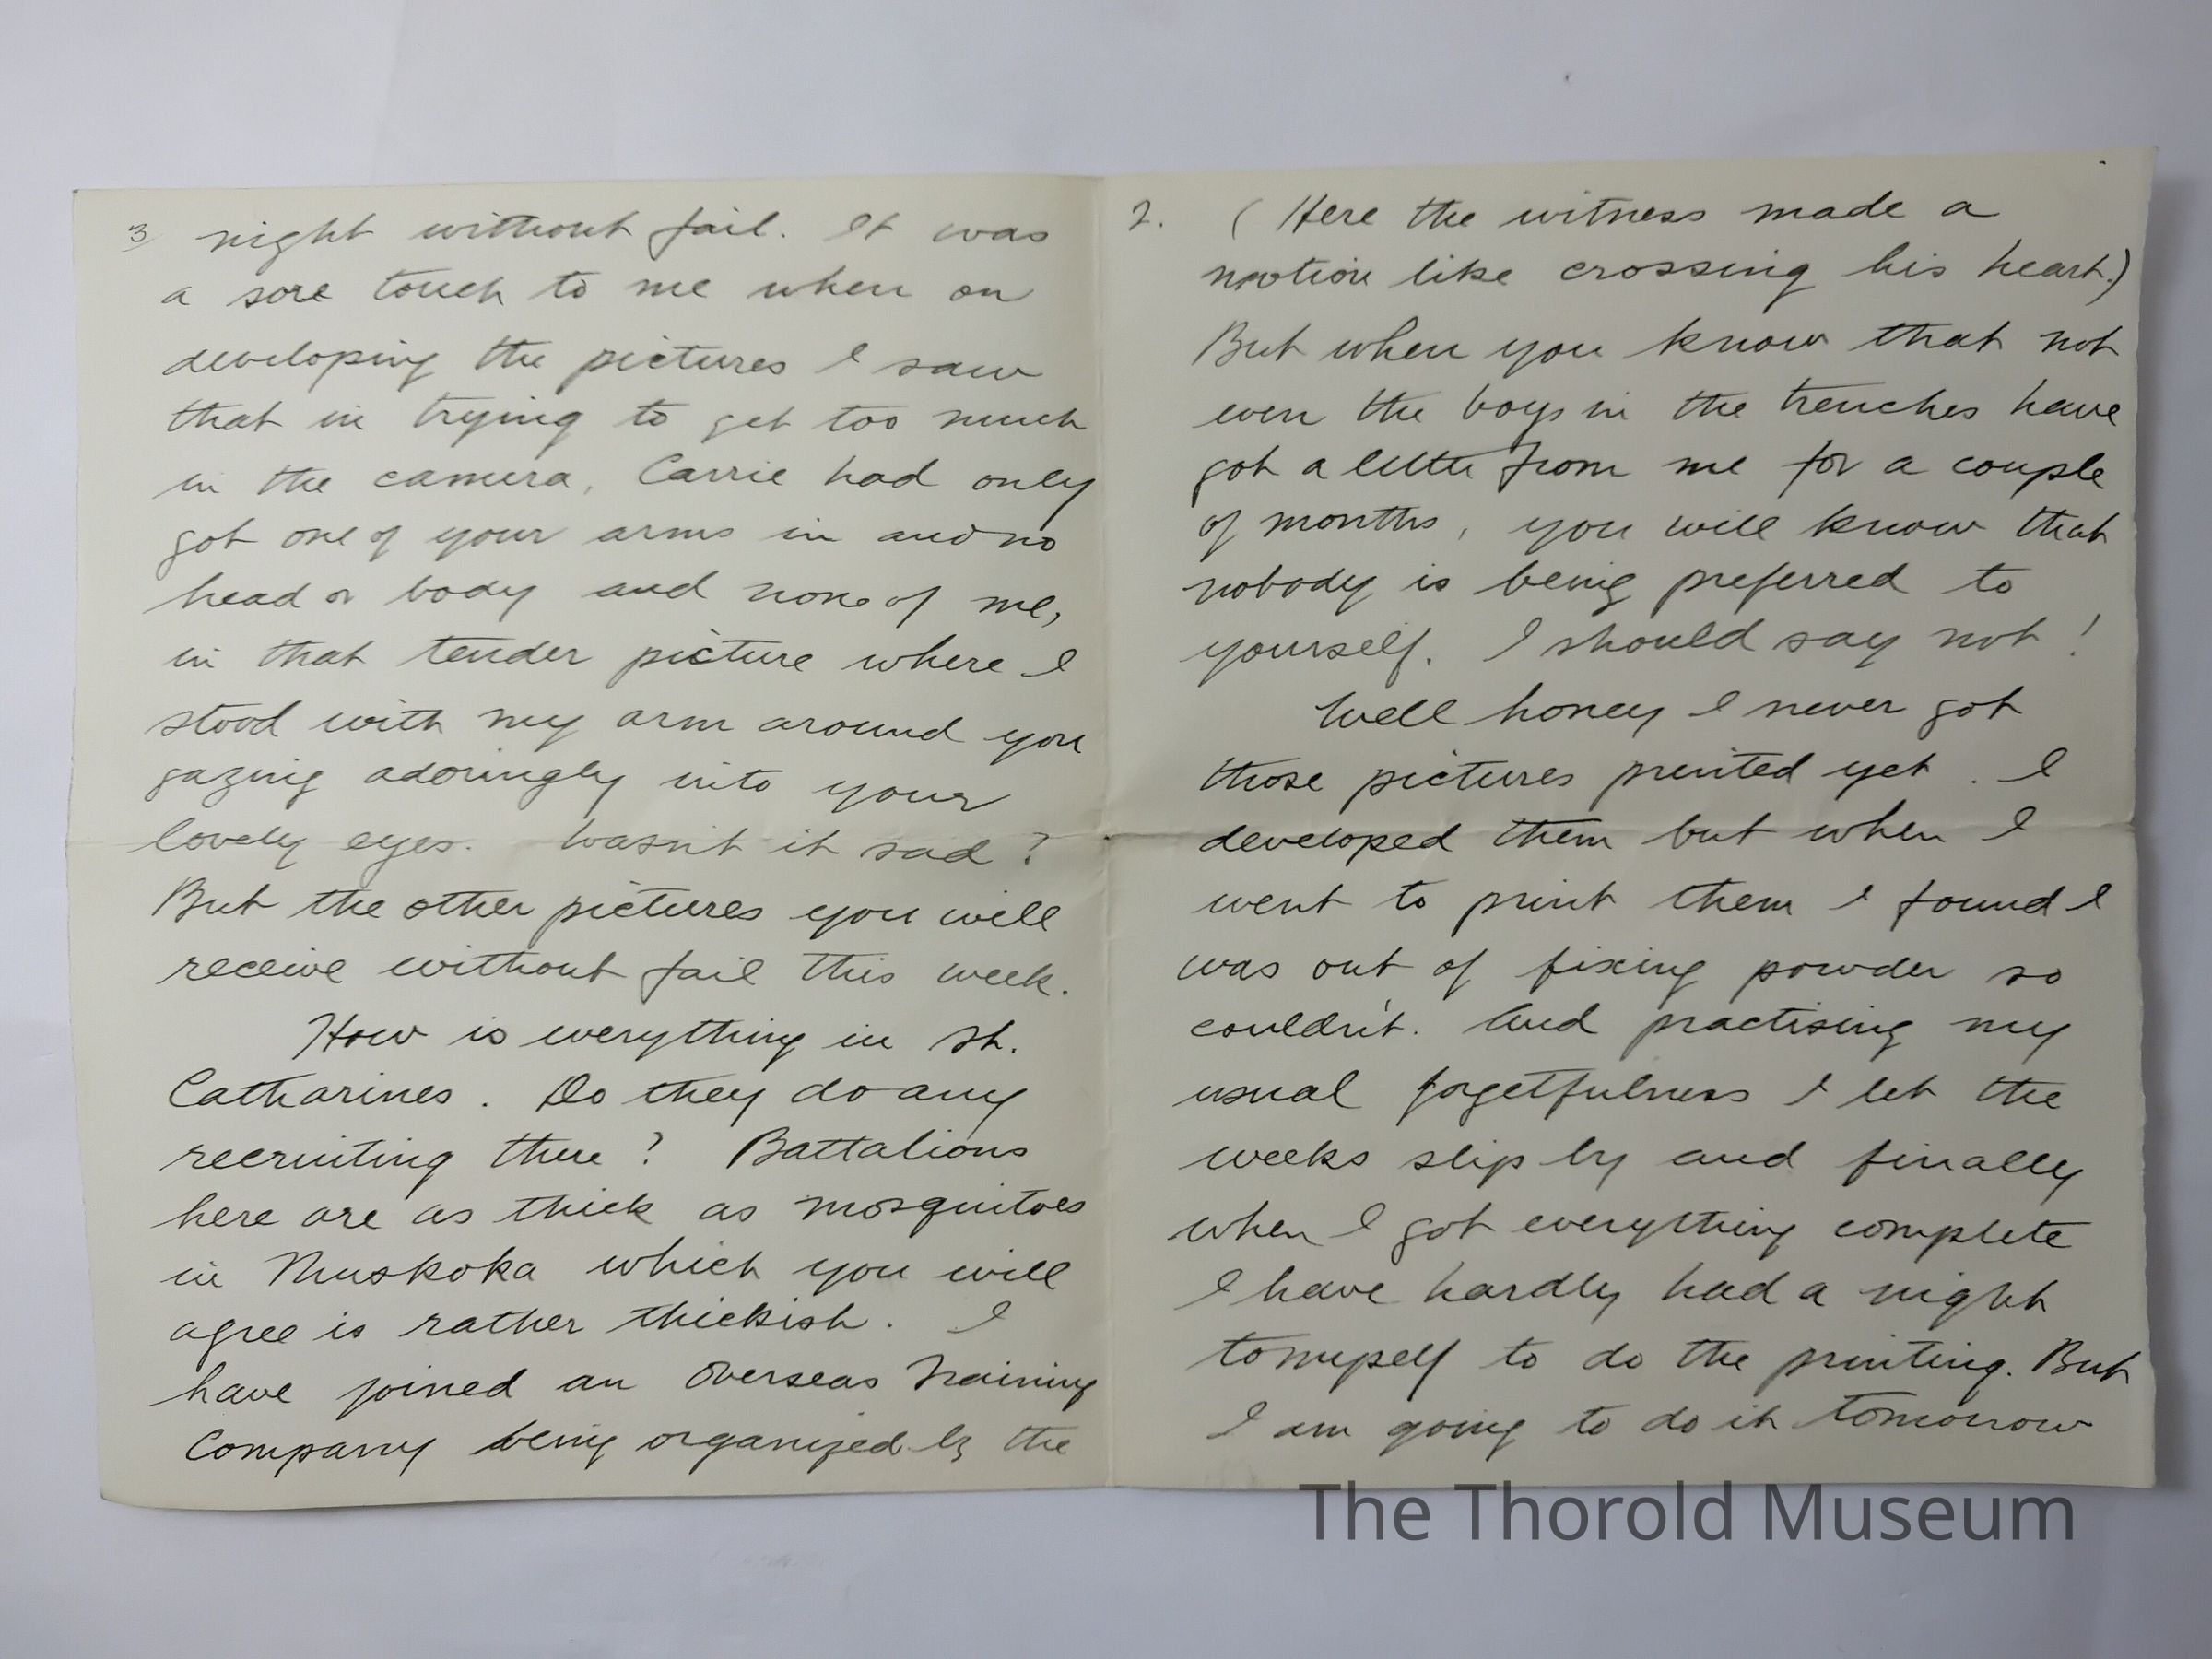 2. (Here the witness made a
motion like crossing his heart.)
But when you know that not
even the boys in the trenches have
got a letter from me for a couple
of months, you will know that
nobody is being preferred to
yourself. I should say not!
Well honey I never got
those pictures printed yet. I
developed them but when I
went to print them I found I
was out of fixing powder so
couldn't. And practising my
usual forgetfulness I let the
weeks slip by and finally
when I got everything complete
I have hardly had a night
to myself to do the printing. But
I am going to do it tomorrow
3 night without fail. It was
a sore touch to me when on
developing the pictures I saw
that in trying to get too much
in the camera, Carrie had only
got one of your arms in and no
head or body and none of me,
in that tender picture where I
stood with my arm around you
gazing adoringly into your
lovely eyes. Wasn't it sad?
But the other pictures you will
receive without fail this week.
How is everything in St.
Catharines. Do they do any
recruiting there? Battalions
here are as thick as mosquitoes
in Muskoka which you will
agree is rather thickish. I
have joined an Overseas Training
Company being organized by the
The Thorold Museum